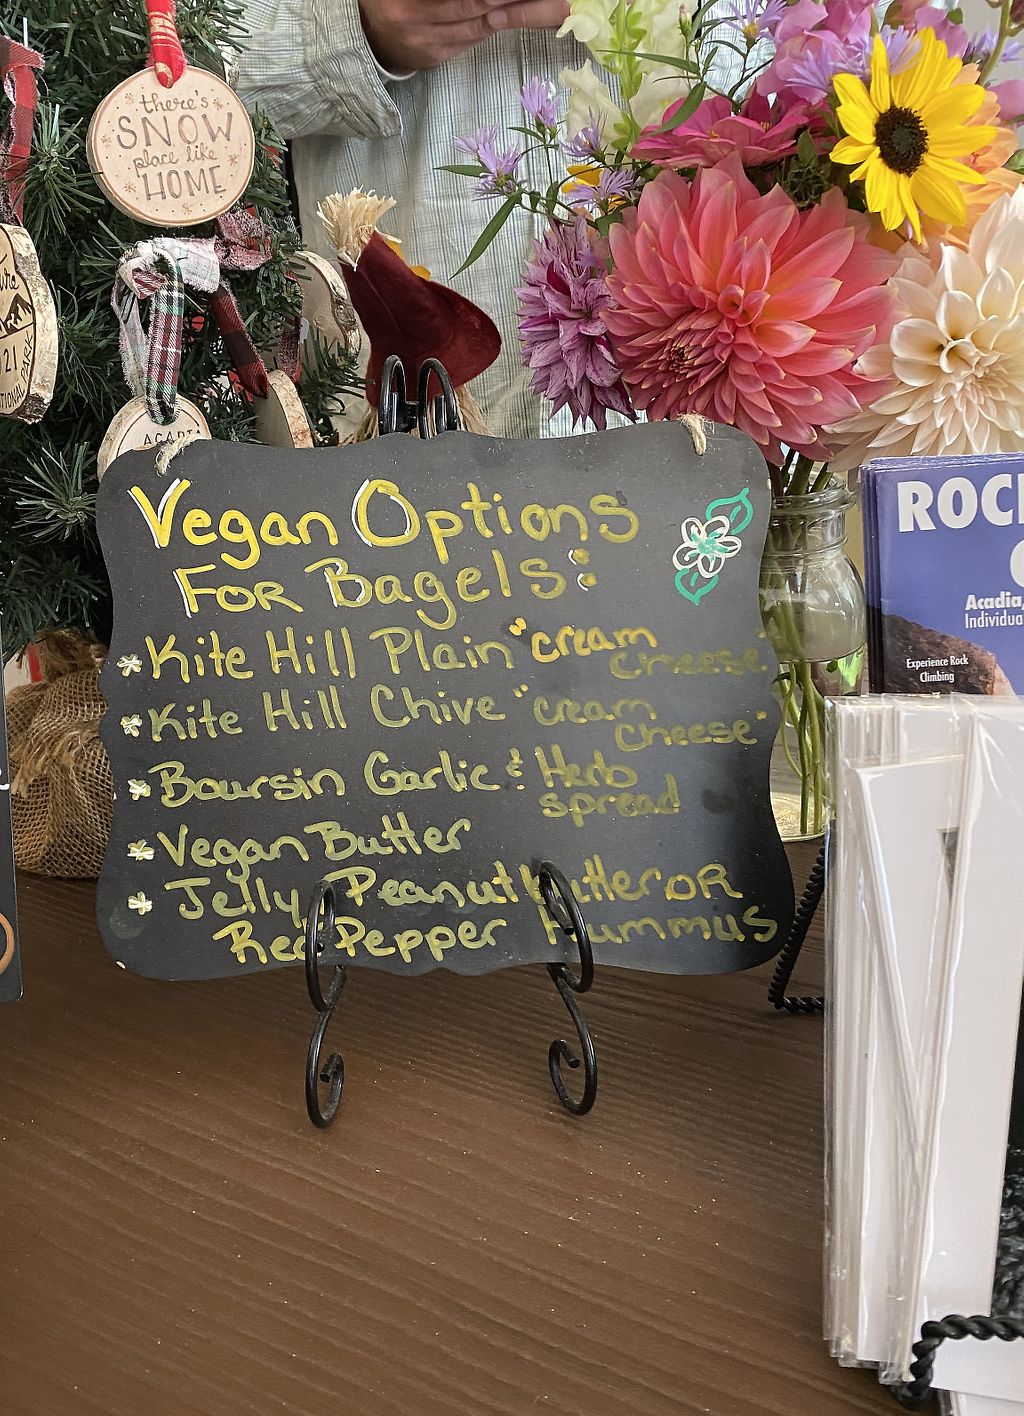 there's
SNOW
place like
HOME
21
NATIONAL PARK
ACADIA
Vegan Options
For Bagels:
* Kite Hill Plain "cream
cheese"
* Kite Hill Chive "cream
cheese"
* Boursin Garlic & Herb
spread
* Vegan Butter
* Jelly Peanut butter OR
Red Pepper Hummus
ROC
Acadia,
Individua
Experience Rock
Climbing